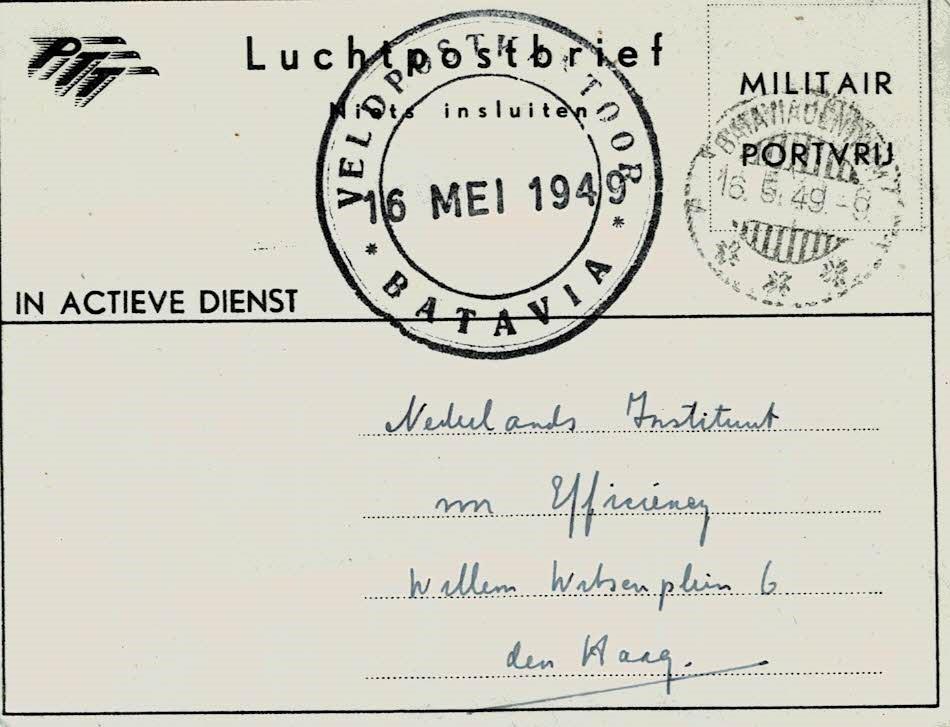 PTT
Luchtpostbrief
Niets insluiten
MILITAIR
PORTVRIJ
VELDPOSTKANTOOR
16 MEI 1949
* BATAVIA *
16. 5. 49. -8.
IN ACTIEVE DIENST
Nederlands Instituut
voor Efficiency
Willem Witsenplein 6
den Haag.